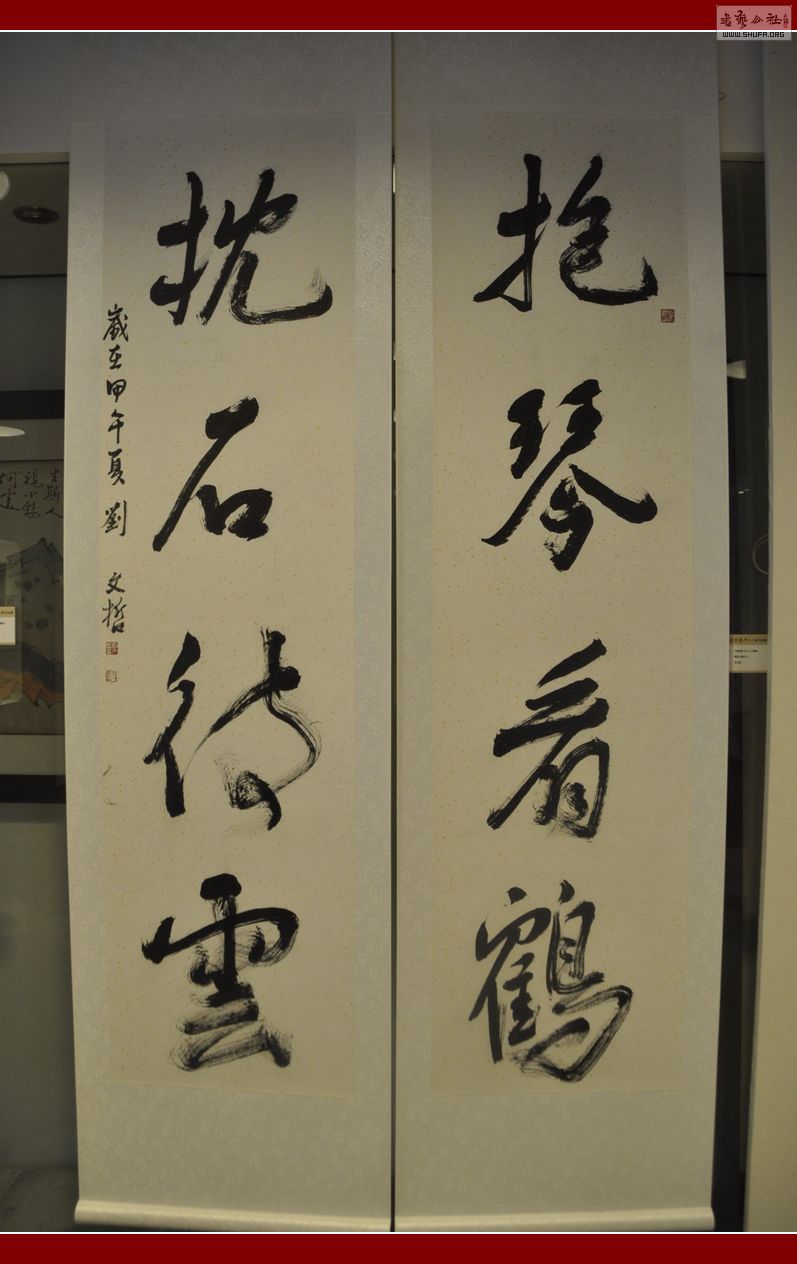 抱琴看鶴
枕石待雲
歲在甲午夏劉文哲
書藝公社
WWW.SHUFA.ORG